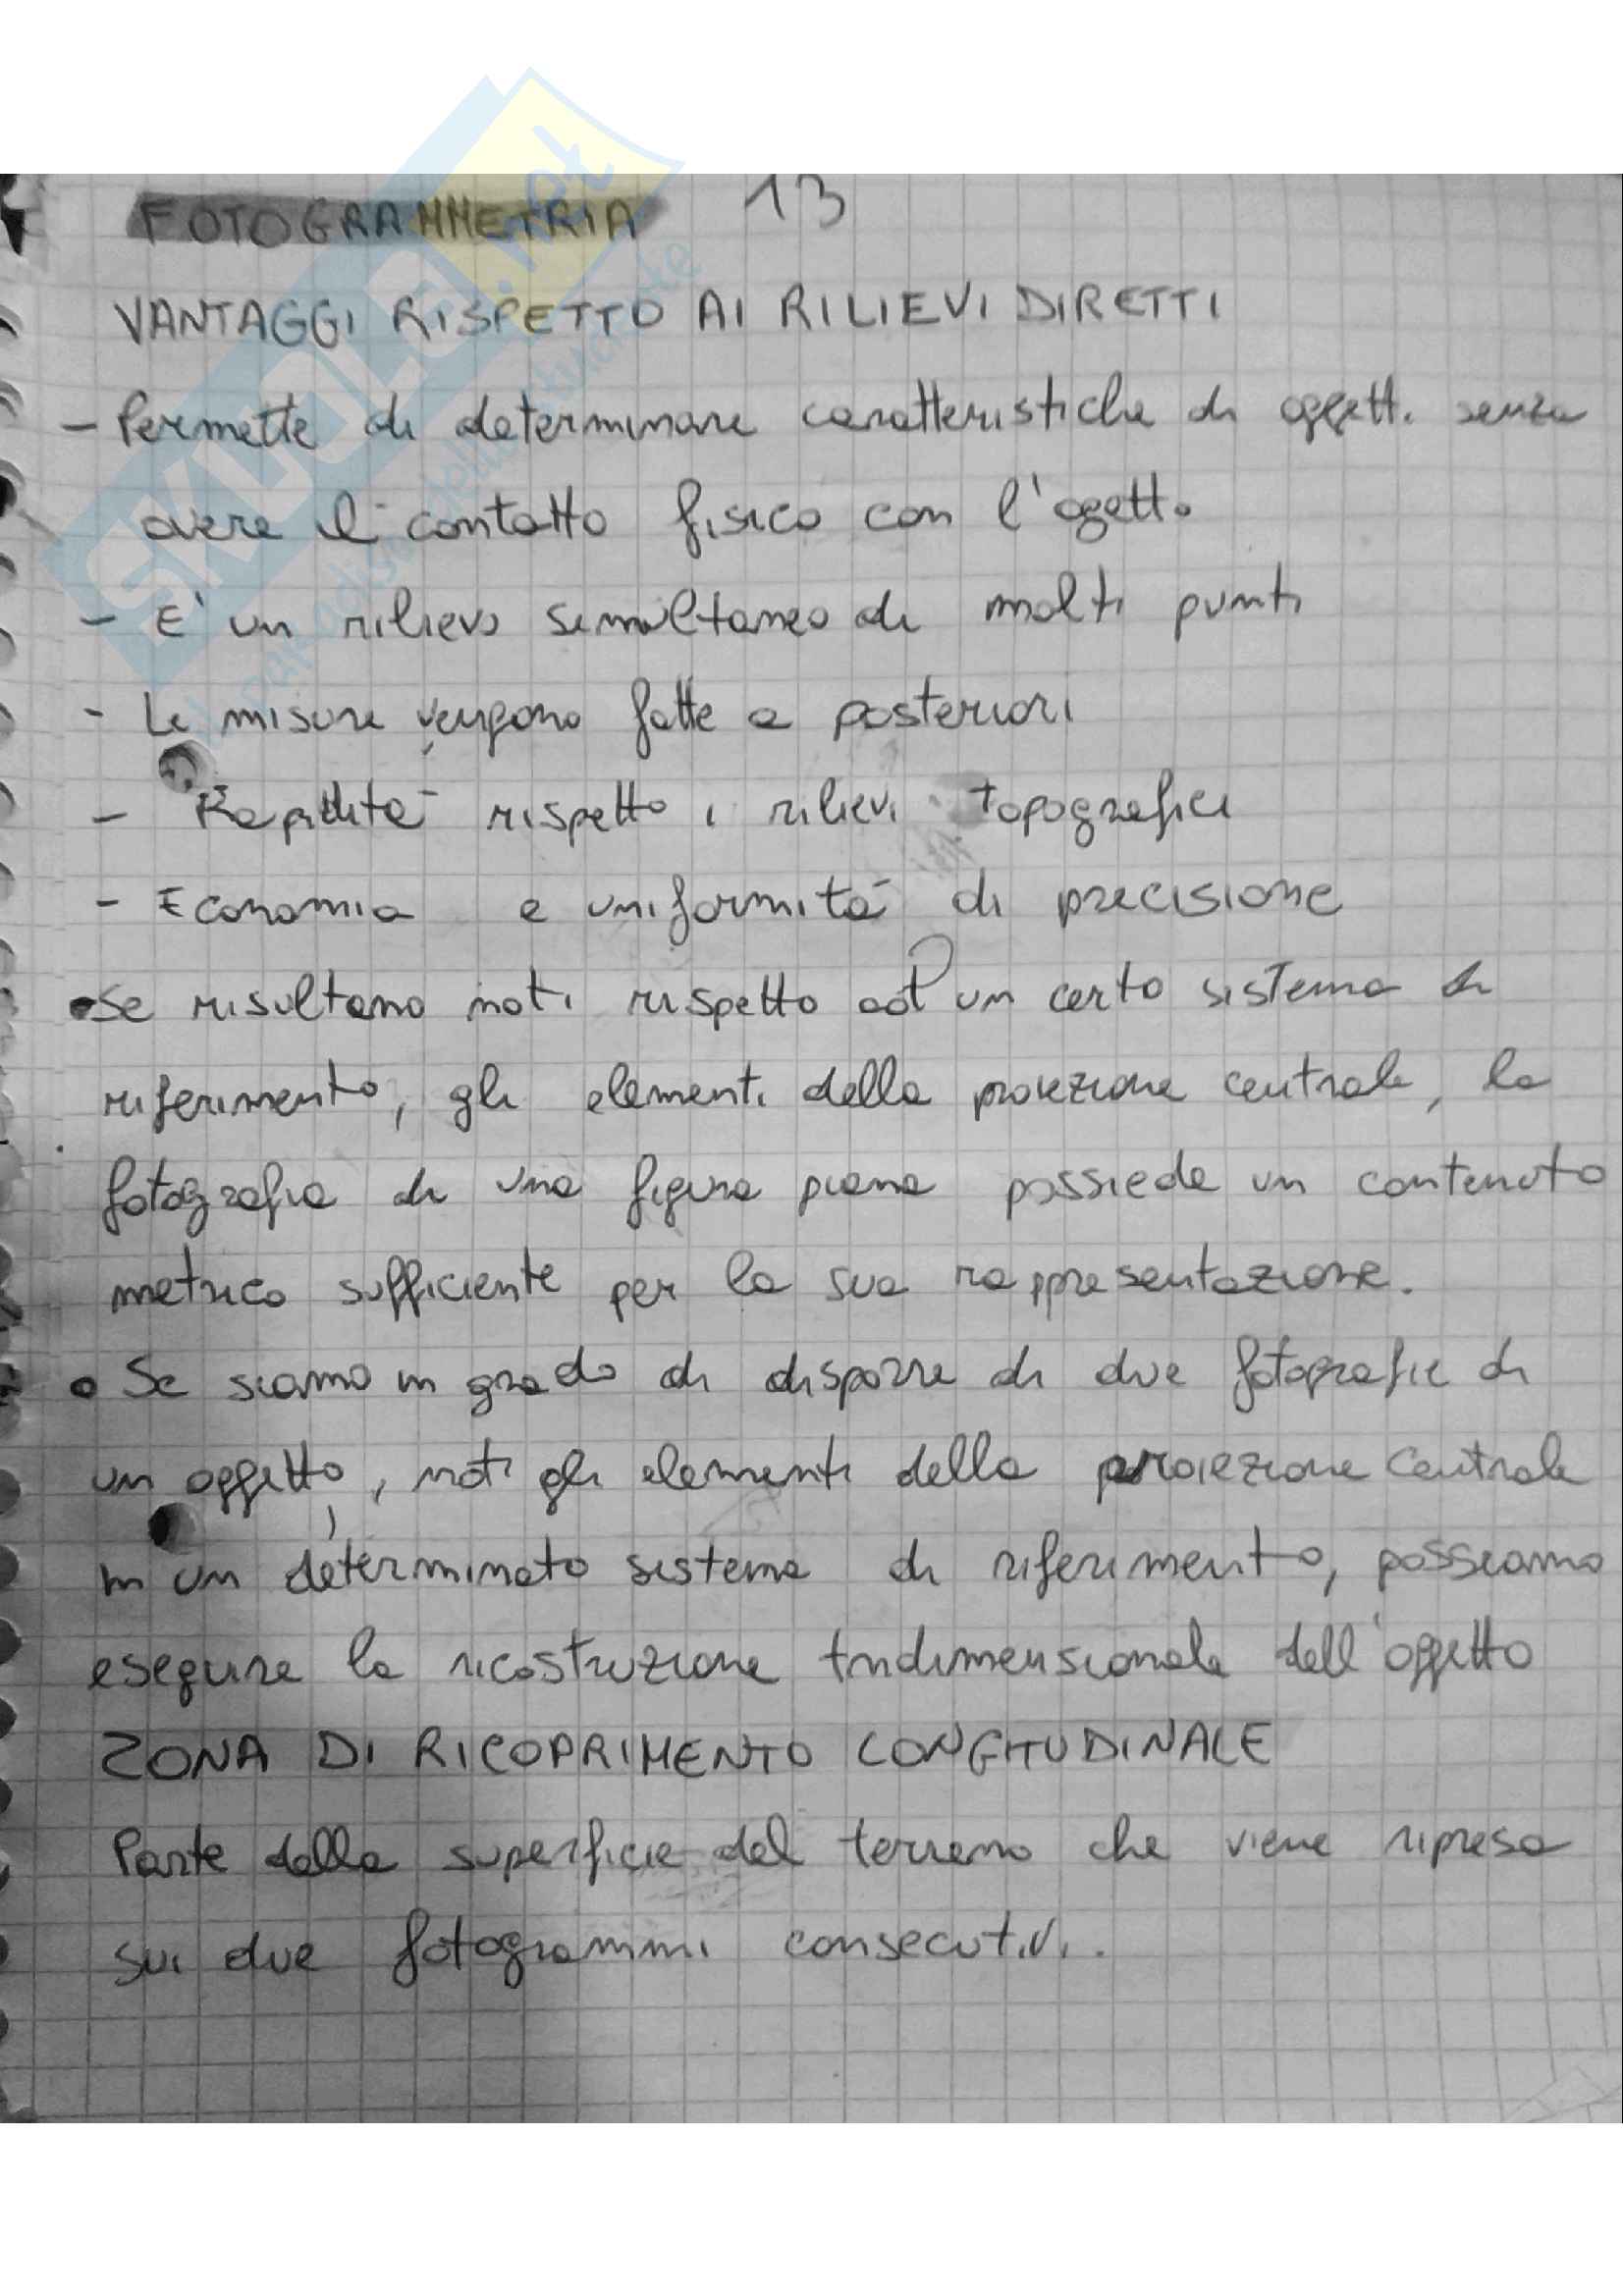 FOTOGRAMMETRIA 13
VANTAGGI RISPETTO AI RILIEVI DIRETTI
- Permette di determinare caratteristiche di oggetti senza
avere il contatto fisico con l'ogetto
- E' un rilievo simultaneo di molti punti
- Le misure vengono fatte a posteriori
- Rapidità rispetto i rilievi topografici
- Economia e uniformità di precisione
• Se risultano noti rispetto ad un certo sistema di
riferimento, gli elementi della proiezione centrale, la
fotografia di una figura piana possiede un contenuto
metrico sufficiente per la sua rappresentazione.
• Se siamo in grado di disporre di due fotografie di
un oggetto, noti gli elementi della proiezione centrale
in un determinato sistema di riferimento, possiamo
eseguire la ricostruzione tridimensionale dell'oggetto
ZONA DI RICOPRIMENTO LONGITUDINALE
Parte della superficie del terreno che viene ripresa
sui due fotogrammi consecutivi.
SKUOLA.net